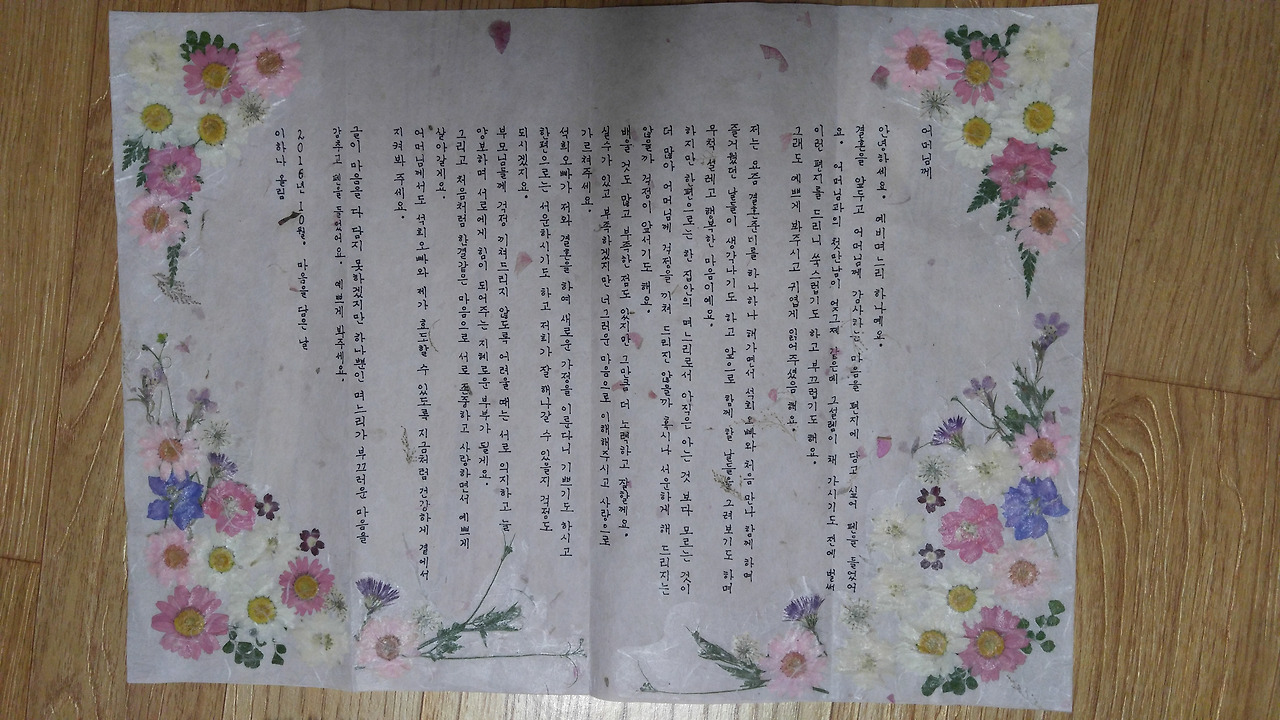 어머님께
안녕하세요. 예비며느리 하나예요.
결혼을 앞두고 어머님께 감사하는 마음을 편지에 담고 싶어 펜을 들었어
요. 어머님과의 첫만남이 엊그제 같은데 그 설렘이 채 가시기도 전에 또
이런 편지를 드리니 쑥스럽기도 하고 부끄럽기도 해요.
그래도 예쁘게 봐주시고 귀엽게 읽어주셨으면 해요.
저는 요즘 결혼준비를 하나하나 해가면서 석회오빠와 처음 만나 함께 하며
즐거웠던 날들이 생각나기도 하고 앞으로 함께 할 날들을 그려보기도 하며
무척 설레고 행복한 마음이에요.
하지만 한편으로는 한 집안의 며느리로서 아직은 아는 것 보다 모르는 것이
더 많아 어머님께 걱정을 끼쳐 드리진 않을까 혹시나 서운하게 해 드리지는
않을까 걱정이 앞서기도 해요.
배울 것도 많고 부족한 점도 있지만 그만큼 더 노력하고 잘할게요.
실수가 있고 부족하겠지만 너그러운 마음으로 이해해주시고 사랑으로
가르쳐주세요.
석회오빠가 저와 결혼을 하여 새로운 가정을 이룬다니 기쁘기도 하시고
한편으로는 서운하시기도 하고 저희가 잘 해나갈 수 있을지 걱정도
되시겠지요.
부모님들께 걱정 끼쳐드리지 않도록 어려울 때는 서로 의지하고 늘
양보하며 서로에게 힘이 되어주는 지혜로운 부부가 될게요.
그리고 처음처럼 한결같은 마음으로 서로 존중하고 사랑하면서 예쁘게
살아갈게요.
어머님께서도 석회오빠와 제가 효도할 수 있도록 지금처럼 건강하게 곁에서
지켜봐 주세요.
글이 마음을 다 담지 못하겠지만 하나뿐인 며느리가 부끄러운 마음을
감추고 펜을 들었어요. 예쁘게 봐주세요.
2016년 10월. 마음을 담은 날
이하나 올림